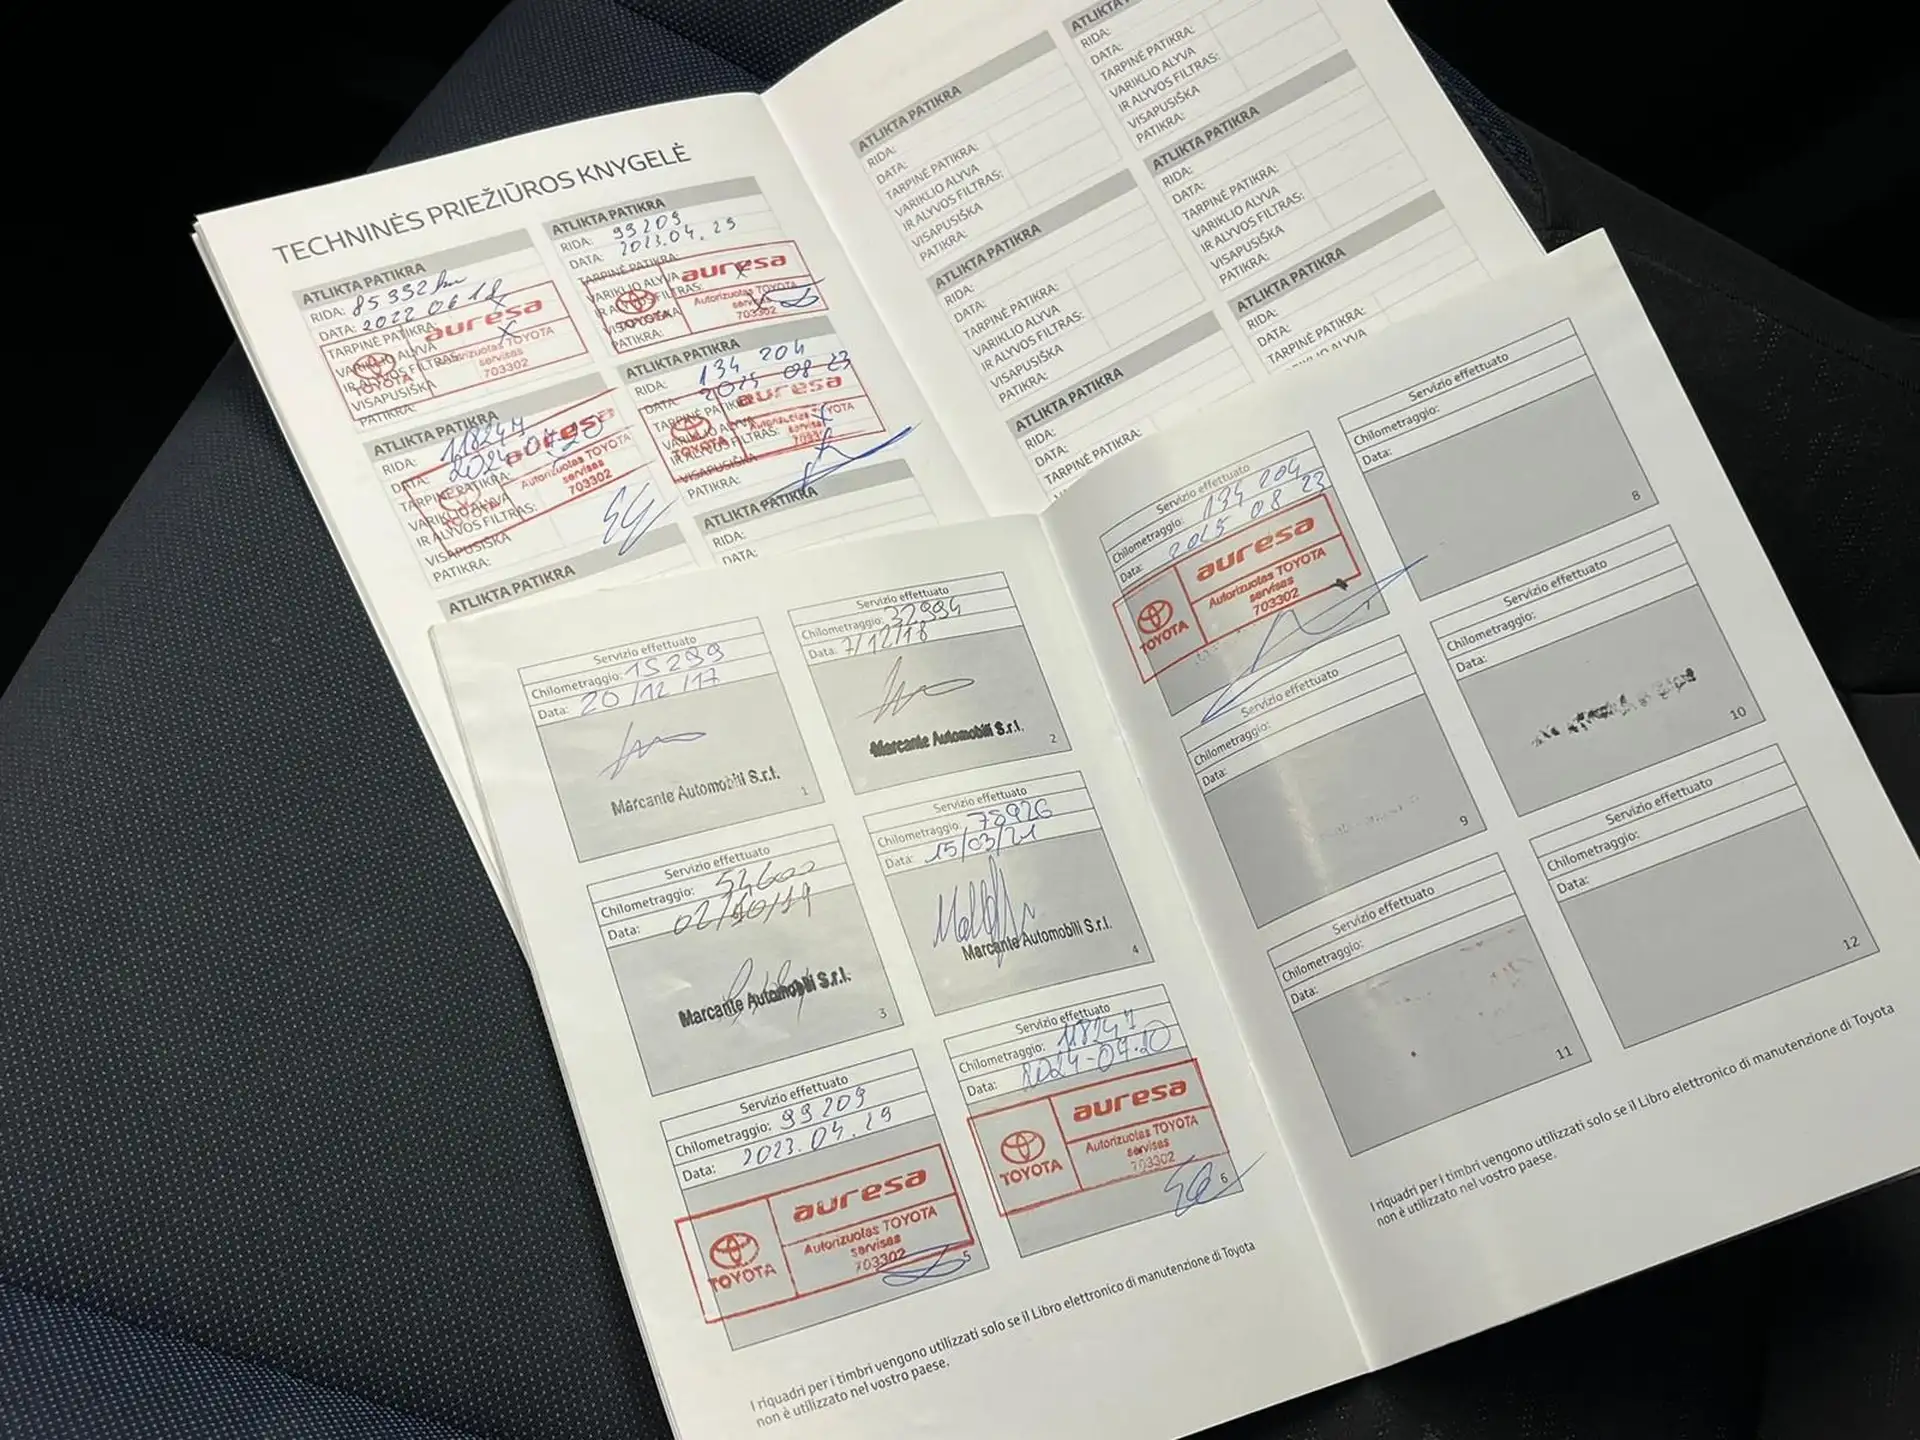 TECHNINĖS PRIEŽIŪROS KNYGELĖ
ATLIKTA PATIKRA
RIDA: 85332 km
DATA: 2022 06 18
TARPINĖ PATIKRA:
VARIKLIO ALYVA
IR ALYVOS FILTRAS:
VISAPUSIŠKA
PATIKRA:
auresa
Autorizuotas TOYOTA
servisas
703302
TOYOTA
ATLIKTA PATIKRA
RIDA: 99209
DATA: 2023.04.29
TARPINĖ PATIKRA:
VARIKLIO ALYVA
IR ALYVOS FILTRAS:
VISAPUSIŠKA
PATIKRA:
auresa
Autorizuotas TOYOTA
servisas
703302
TOYOTA
ATLIKTA PATIKRA
RIDA: 118247
DATA: 2024-04-20
TARPINĖ PATIKRA:
VARIKLIO ALYVA
IR ALYVOS FILTRAS:
VISAPUSIŠKA
PATIKRA:
auresa
Autorizuotas TOYOTA
servisas
703302
ATLIKTA PATIKRA
RIDA: 134 204
DATA: 2025 08 23
TARPINĖ PATIKRA:
VARIKLIO ALYVA
IR ALYVOS FILTRAS:
VISAPUSIŠKA
PATIKRA:
auresa
Autorizuotas TOYOTA
servisas
703302
TOYOTA
ATLIKTA PATIKRA
ATLIKTA PATIKRA
RIDA:
DATA:
ATLIKTA PATIKRA
RIDA:
DATA:
TARPINĖ PATIKRA:
VARIKLIO ALYVA
IR ALYVOS FILTRAS:
VISAPUSIŠKA
PATIKRA:
ATLIKTA PATIKRA
RIDA:
DATA:
TARPINĖ PATIKRA:
VARIKLIO ALYVA
IR ALYVOS FILTRAS:
VISAPUSIŠKA
PATIKRA:
ATLIKTA PATIKRA
RIDA:
DATA:
TARPINĖ PATIKRA:
VARIKLIO ALYVA
IR ALYVOS FILTRAS:
VISAPUSIŠKA
PATIKRA:
ATLIKTA PATIKRA
RIDA:
DATA:
TARPINĖ PATIKRA:
VARIKLIO ALYVA
IR ALYVOS FILTRAS:
VISAPUSIŠKA
PATIKRA:
ATLIKTA PATIKRA
RIDA:
DATA:
TARPINĖ PATIKRA:
ATLIKTA PATIKRA
RIDA:
DATA:
TARPINĖ PATIKRA:
VARIKLIO ALYVA
Servizio effettuato
Chilometraggio: 15299
Data: 20/12/17
Marcante Automobili S.r.l.
1
Servizio effettuato
Chilometraggio: 32994
Data: 7/12/18
Marcante Automobili S.r.l.
2
Servizio effettuato
Chilometraggio: 54600
Data: 02/10/19
Marcante Automobili S.r.l.
3
Servizio effettuato
Chilometraggio: 78926
Data: 15/03/21
Marcante Automobili S.r.l.
4
Servizio effettuato
Chilometraggio: 99209
Data: 2023.04.29
auresa
Autorizuotas TOYOTA
servisas
703302
TOYOTA
5
Servizio effettuato
Chilometraggio: 118247
Data: 2024-04-20
auresa
Autorizuotas TOYOTA
servisas
703302
TOYOTA
6
I riquadri per i timbri vengono utilizzati solo se il Libro elettronico di manutenzione di Toyota
non è utilizzato nel vostro paese.
Servizio effettuato
Chilometraggio: 134 204
Data: 2025 08 23
auresa
Autorizuotas TOYOTA
servisas
703302
TOYOTA
7
Servizio effettuato
Chilometraggio:
Data:
8
Servizio effettuato
Chilometraggio:
Data:
9
Servizio effettuato
Chilometraggio:
Data:
10
Servizio effettuato
Chilometraggio:
Data:
11
Servizio effettuato
Chilometraggio:
Data:
12
I riquadri per i timbri vengono utilizzati solo se il Libro elettronico di manutenzione di Toyota
non è utilizzato nel vostro paese.